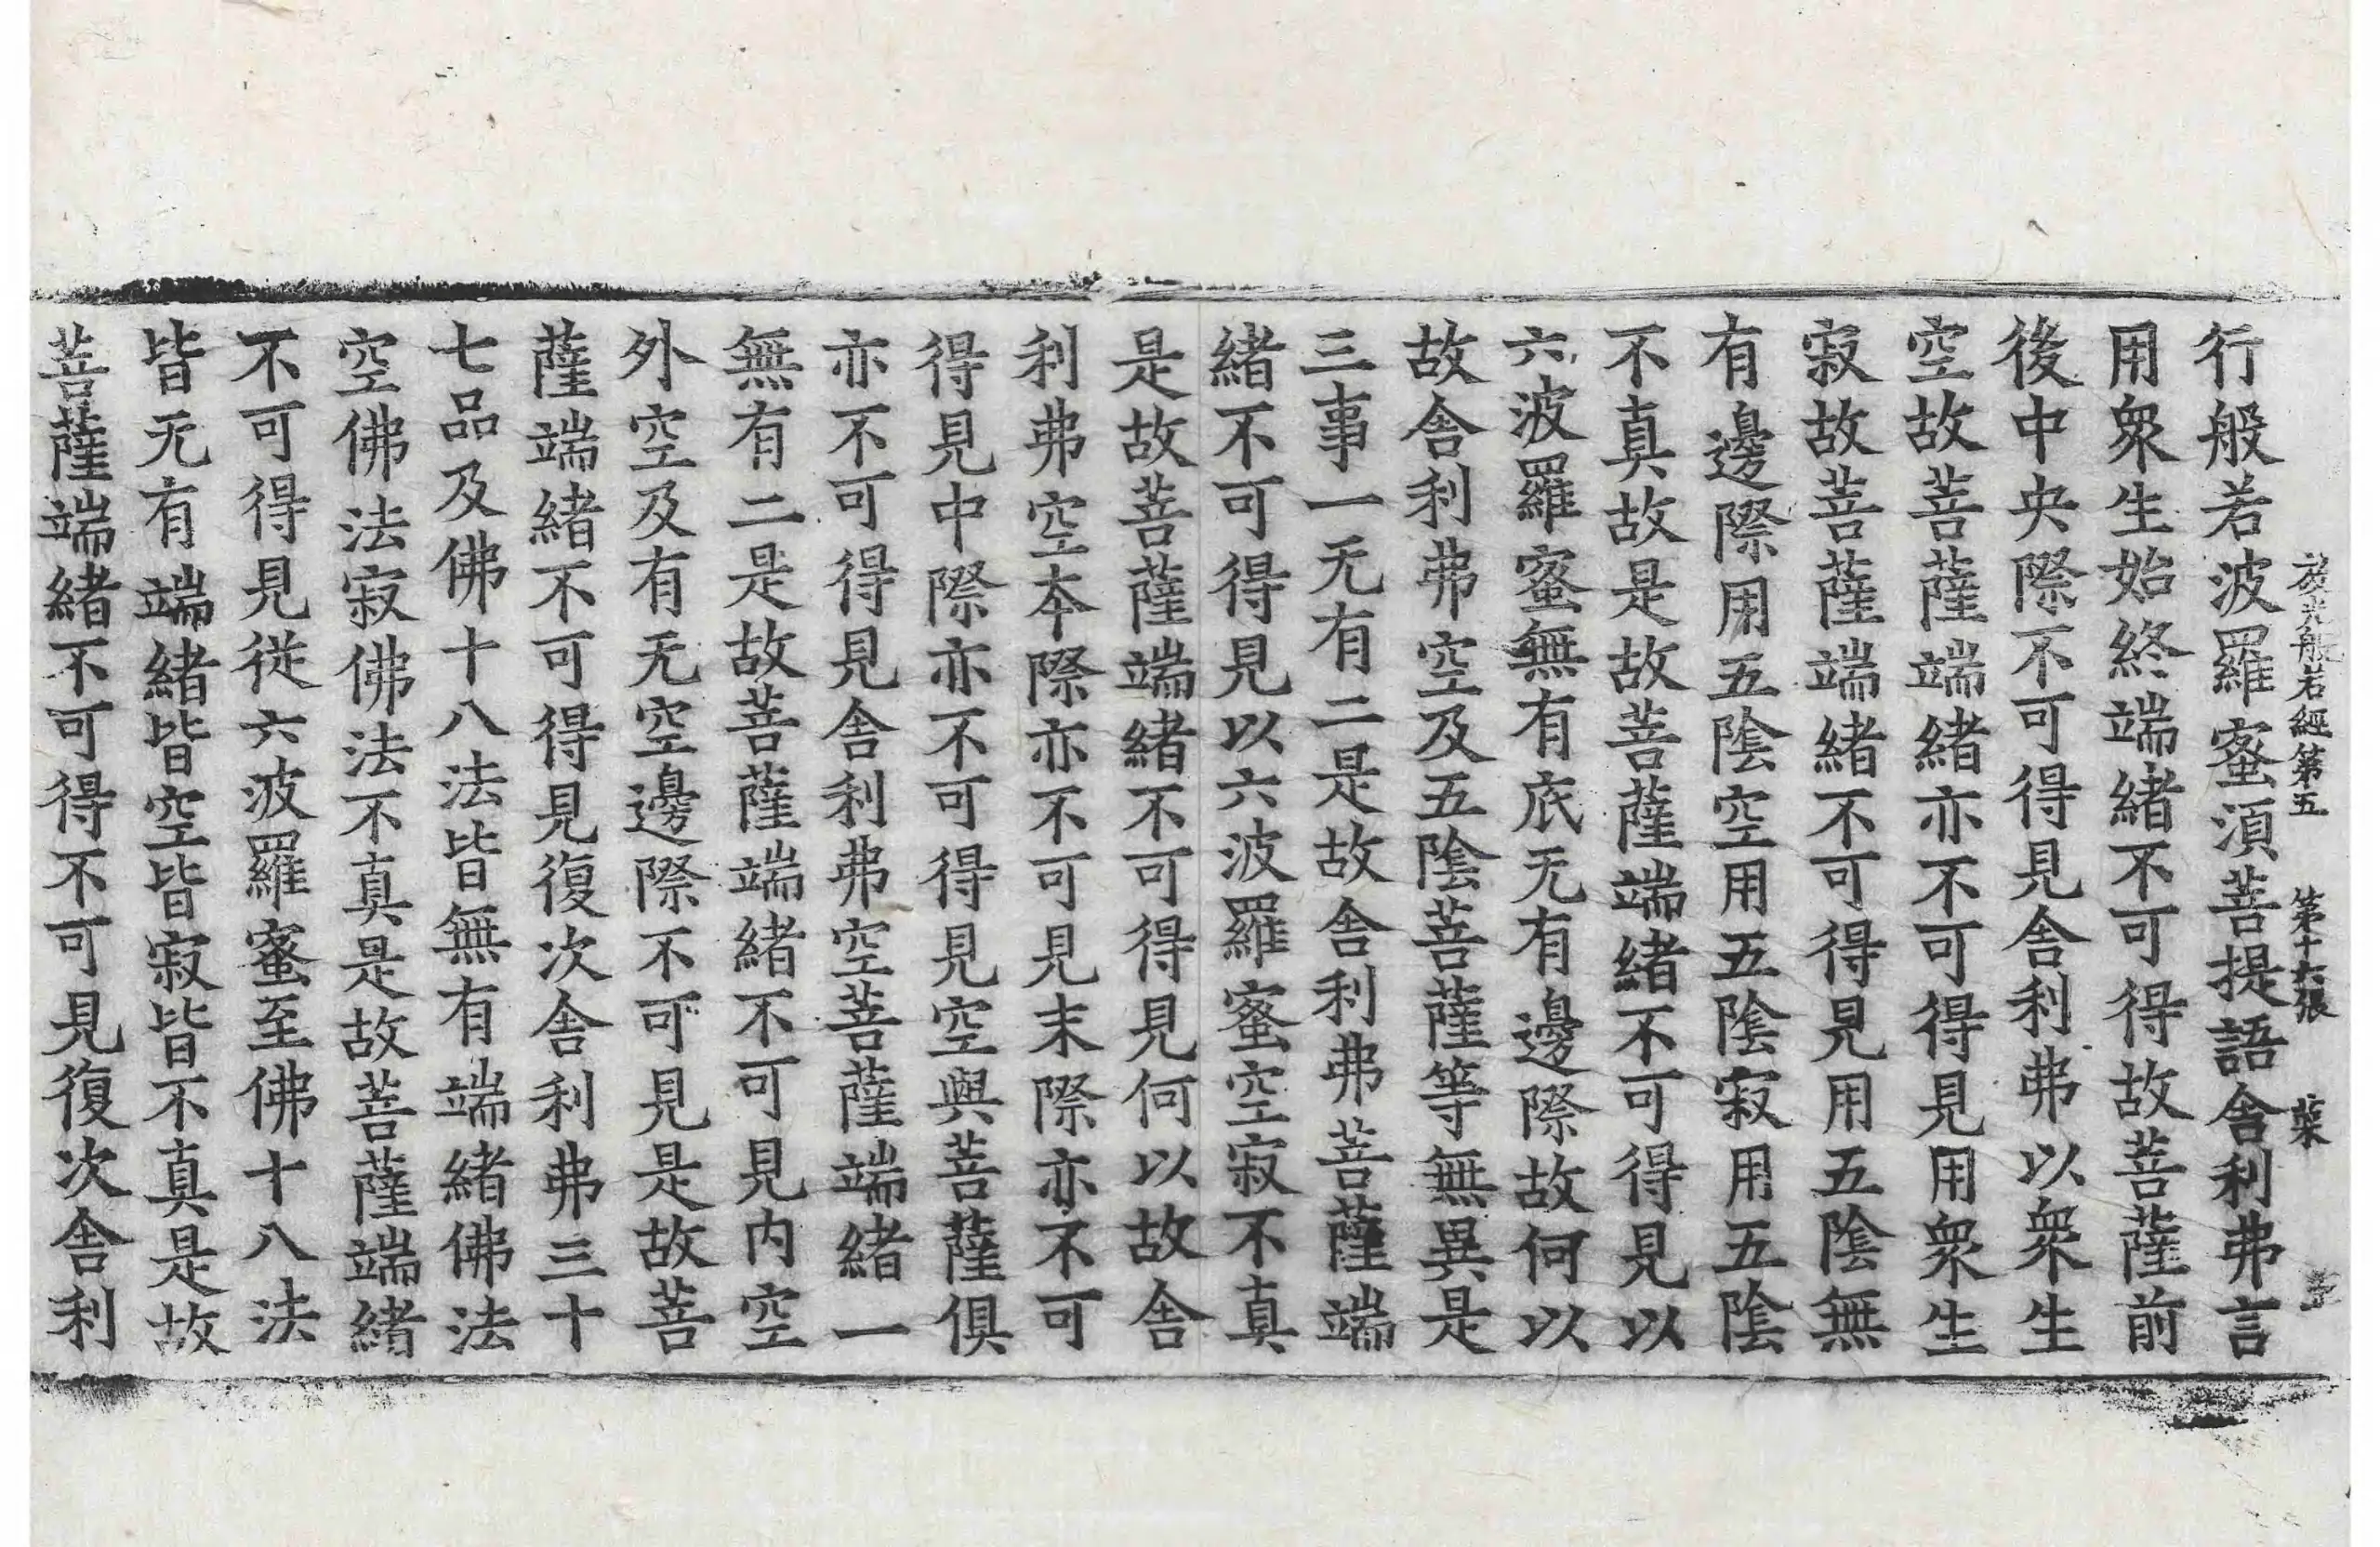 放光般若經第五 第十六張 菜
行般若波羅蜜須菩提語舍利弗言
用衆生始終端緒不可得故菩薩前
後中央際不可得見舍利弗以衆生
空故菩薩端緒亦不可得見用衆生
寂故菩薩端緒不可得見用五陰無
有邊際用五陰空用五陰寂用五陰
不真故是故菩薩端緒不可得見以
六波羅蜜無有底无有邊際故何以
故舍利弗空及五陰菩薩等無異是
三事一无有二是故舍利弗菩薩端
緒不可得見以六波羅蜜空寂不真
是故菩薩端緒不可得見何以故舍
利弗空本際亦不可見末際亦不可
得見中際亦不可得見空與菩薩俱
亦不可得見舍利弗空菩薩端緒一
無有二是故菩薩端緒不可見内空
外空及有无空邊際不可見是故菩
薩端緒不可得見復次舍利弗三十
七品及佛十八法皆無有端緒佛法
空佛法寂佛法不真是故菩薩端緒
不可得見從六波羅蜜至佛十八法
皆无有端緒皆空皆寂皆不真是故
菩薩端緒不可得不可見復次舍利